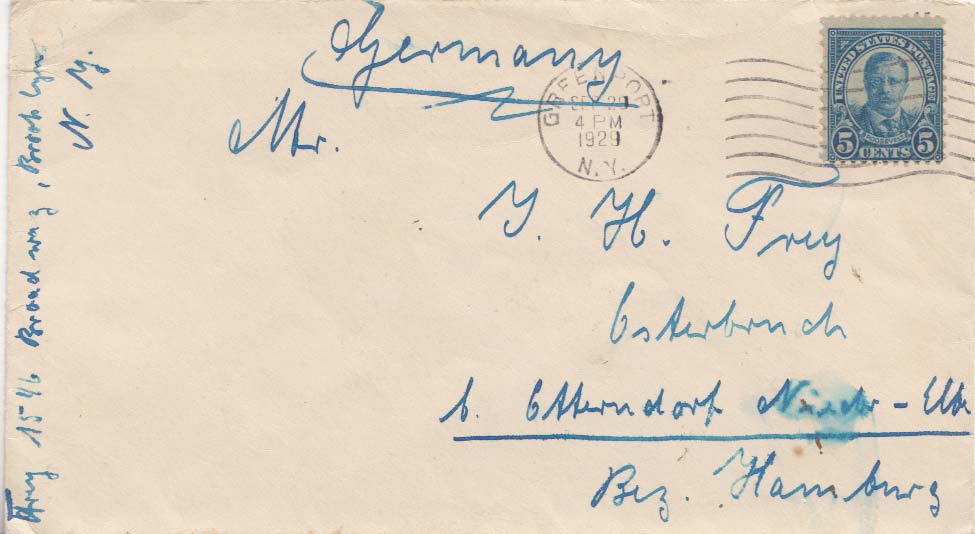 Germany
Mr.
J. H. Frey
Osterbruch
b. Otterndorf Nieder-Elbe
Bez. Hamburg
Frey 1546 Broadway, Brooklyn
N. Y.
GREENPORT
SEP 29
4 PM
1929
N.Y.
UNITED STATES POSTAGE
ROOSEVELT
5 CENTS 5